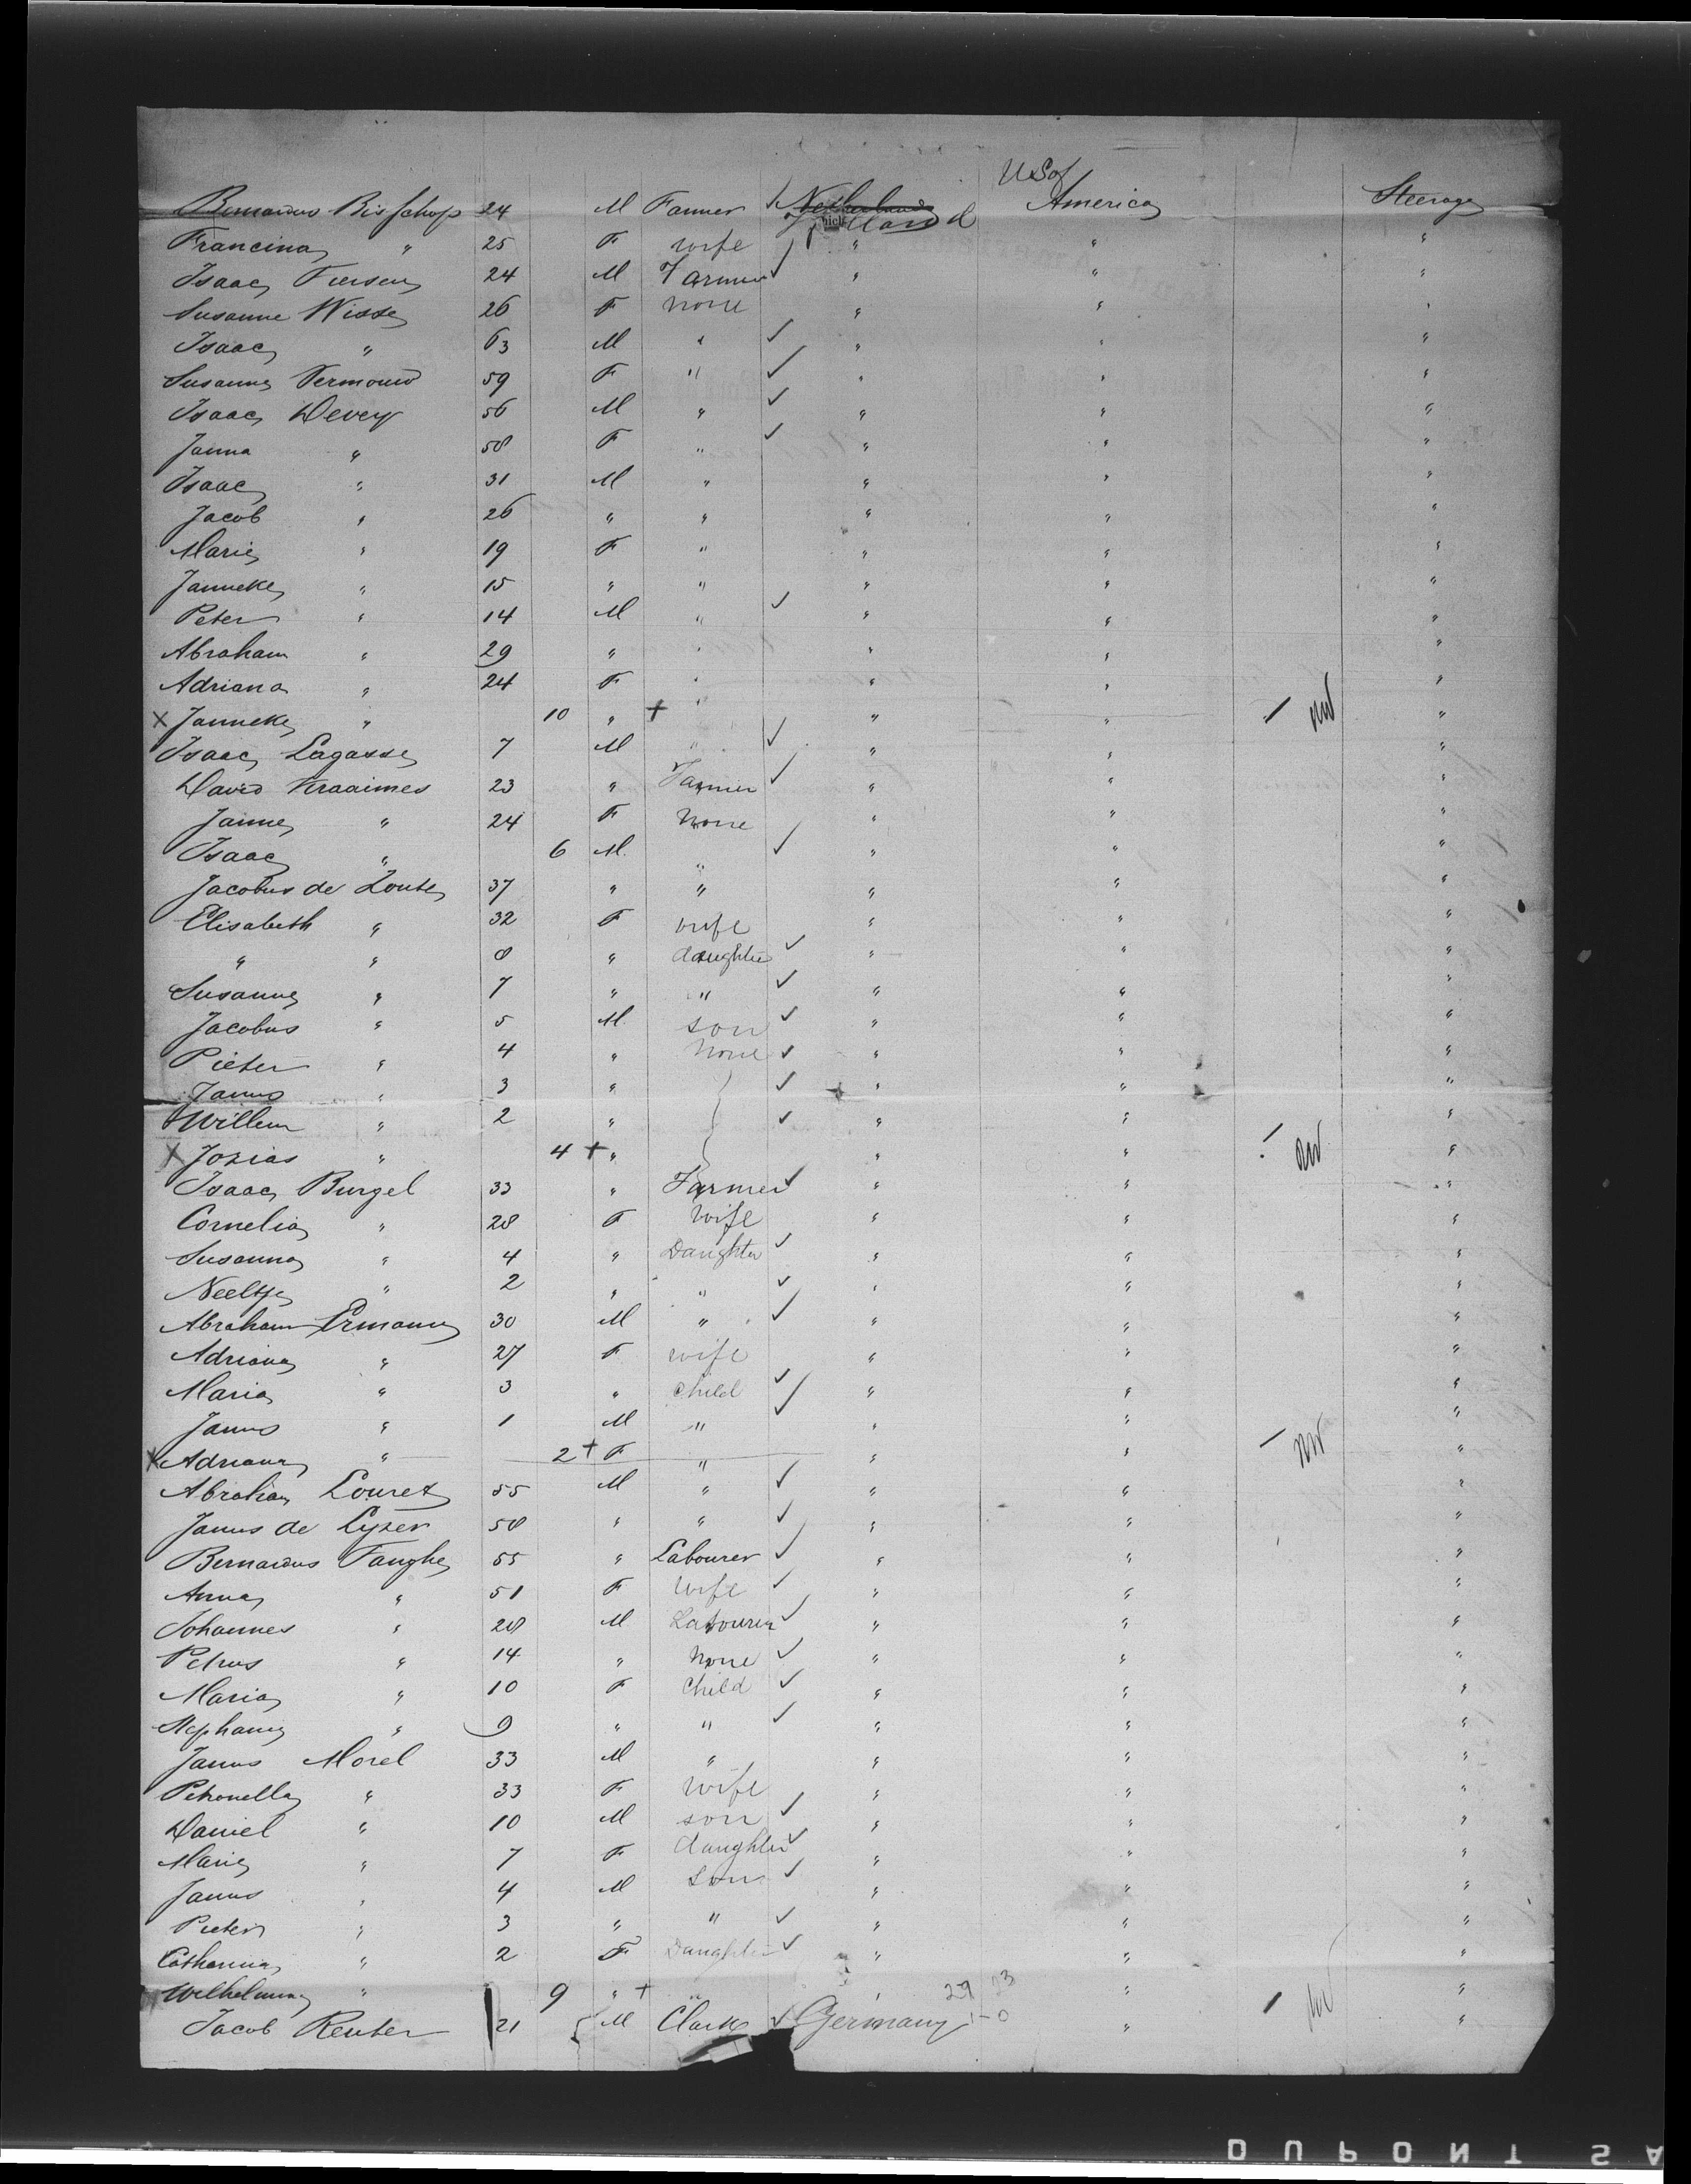 US of
Bernardus Bisschop 24 M Farmer Netherlands America Steerage
Holland
Francina " 25 F wife " " "
Isaac 24 M Farmer " " "
Susanne Wisse 26 F none " " "
Isaac " 63 M " " " "
Susanna Vermouw 59 F " " " "
Isaac Devey 56 M " " " "
Janna " 58 F " " " "
Isaac " 31 M " " " "
Jacob " 26 " " " " "
Marie " 19 F " " " "
Janneke " 15 " " " " "
Peter " 14 M " " " "
Abraham " 29 " " " " "
Adriana " 24 F " " " "
X Janneke " 10 " + " " " "
Isaac Lagasse 7 M " " " "
David Kraaimes 23 " Farmer " " "
Janne " 24 F None " " "
Isaac " 6 M " " " "
Jacobus de Zoute 37 " " " " "
Elisabeth " 32 F wife " " "
" " 8 " daughter " " "
Susanna " 7 " " " " "
Jacobus " 5 M son " " "
Pieter " 4 " None " " "
Janus " 3 " " " "
Willem " 2 " " " "
X Jozias " 4 + " " " "
Isaac Burgel 33 " Farmer " " "
Cornelia " 28 F Wife " " "
Susanna " 4 " Daughter " " "
Neeltje " 2 " " " " "
Abraham Ermann 30 M " " " "
Adriana " 27 F wife " " "
Maria " 3 " child " " "
Janus " 1 M " " " "
X Adriana " 2 + F " " " "
Abraham Louret 55 M " " " "
Janus de Lyzer 58 " " " " "
Bernardus Tanghe 55 " Labourer " " "
Anna " 51 F Wife " " "
Johannes " 28 M Labourer " " "
Petrus " 14 " None " " "
Maria " 10 F Child " " "
Stephania " 9 " " " " "
Janus Morel 33 M " " " "
Petronella " 33 F Wife " " "
Daniel " 10 M son " " "
Marie " 7 F daughter " " "
Janus " 4 M Son " " "
Pieter " 3 " " " " "
Catharina " 2 F Daughter " " "
Wilhelmina " 9 " + " " " "
Jacob Reuter 21 M Clark Germany " "
DUPONT SA